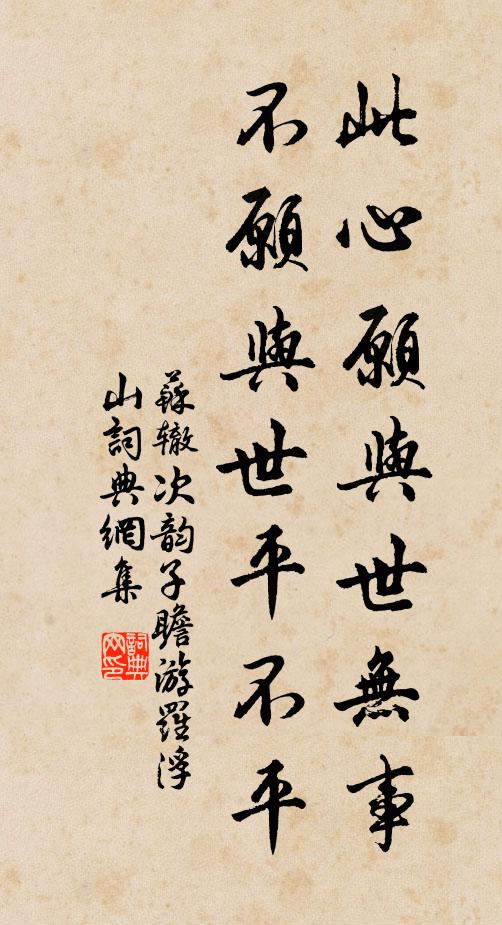 此心願與世無事
不願與世平不平
蘇辙次韵子瞻游羅浮
山詞典網集
詞典
网印